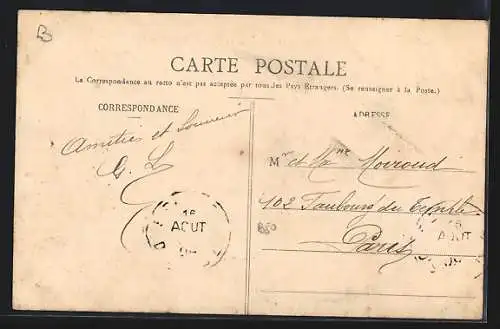 B
CARTE POSTALE
La Correspondance au recto n'est pas acceptée par tous les Pays Étrangers. (Se renseigner à la Poste.)
CORRESPONDANCE
ADRESSE
Amitiés et Souvenir
G. L
Mr et Mme Moiroud
102 Faubourg du Temple
Paris
16
AOUT
16
AOUT